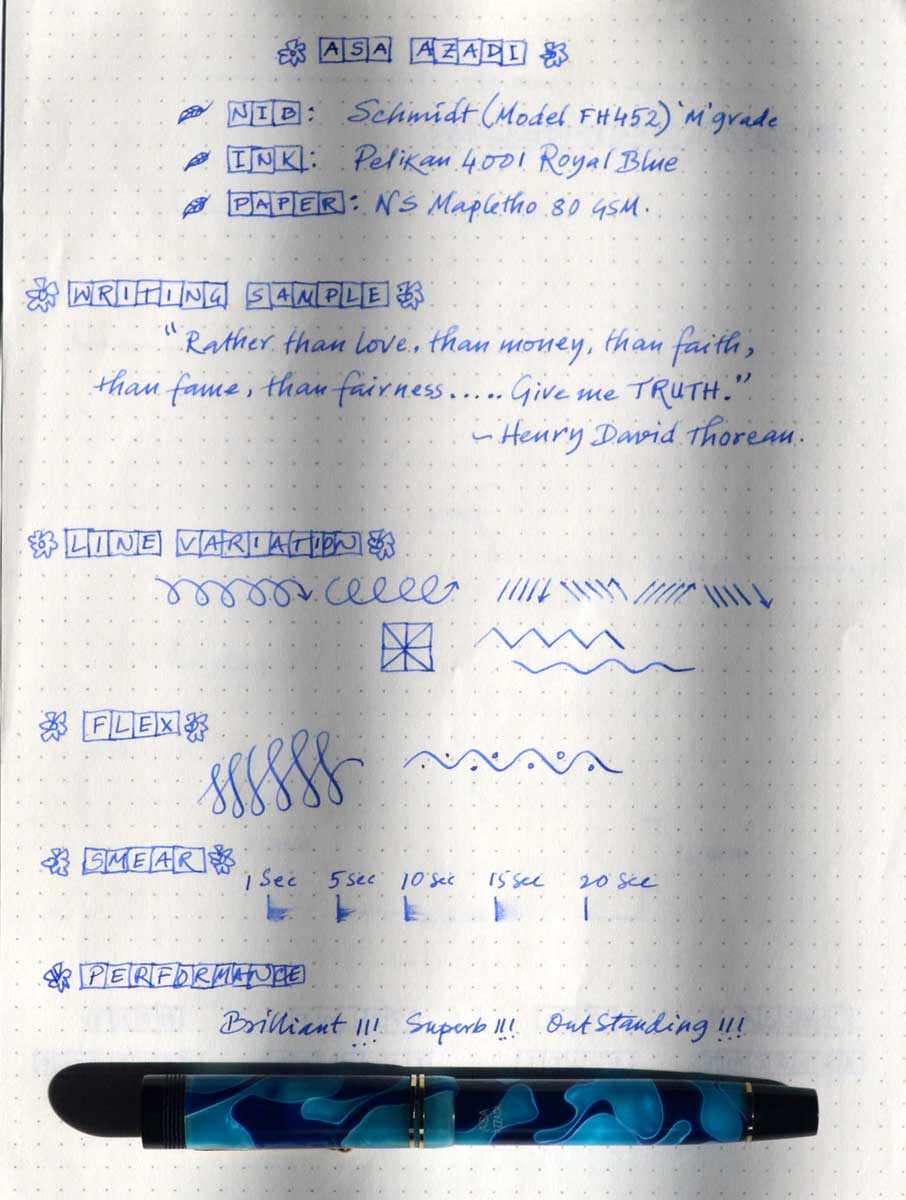 ASA AZADI
NIB: Schmidt (Model FH452) 'M' grade
INK: Pelikan 4001 Royal Blue
PAPER: NS Mapletho 80 GSM.
WRITING SAMPLE
"Rather than love, than money, than faith,
than fame, than fairness..... Give me TRUTH."
- Henry David Thoreau.
LINE VARIATION
FLEX
SMEAR
1 Sec 5 sec 10 sec 15 sec 20 sec
PERFORMANCE
Brilliant !!! Superb !!! Outstanding !!!
ASA